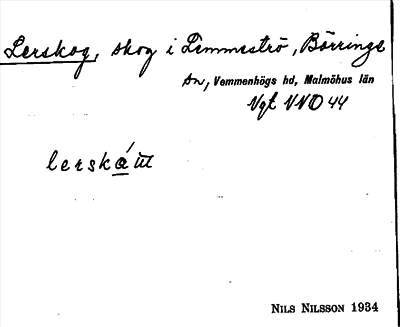 Lerskog, skog i Lemmeströ, Börringe
sn, Vemmenhögs hd, Malmöhus län
Vgt VNO 44
lersk
NILS NILSSON 1934